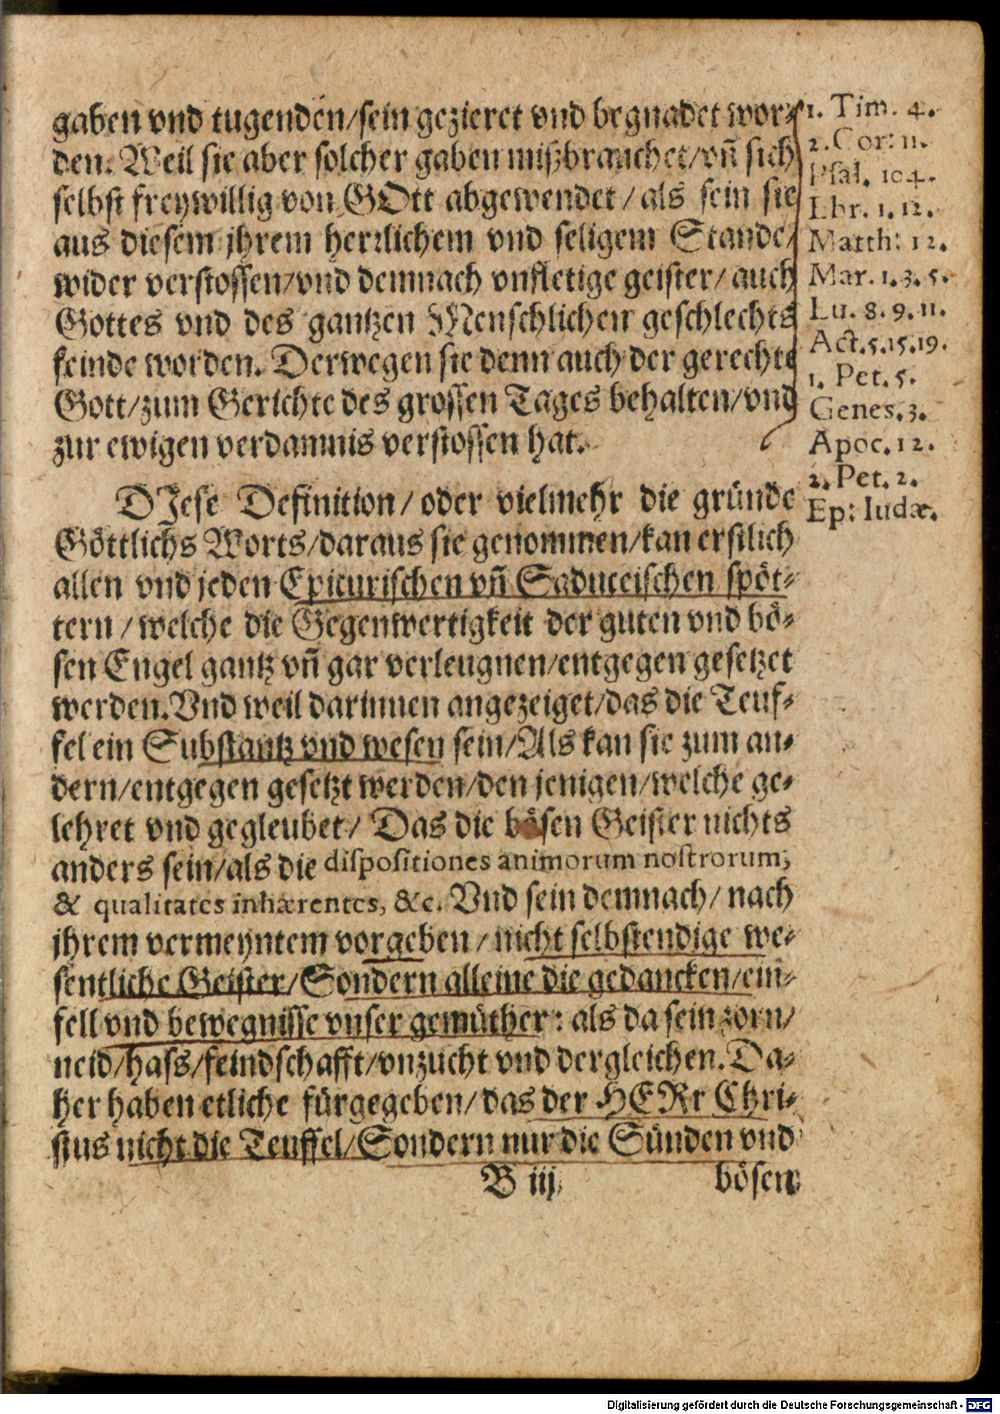 gaben vnd tugenden/sein gezieret vnd begnadet wor-
den. Weil sie aber solcher gaben mißbrauchet/vñ sich
selbst freywillig von GOtt abgewendet / als sein sie
aus diesem jhrem herrlichem vnd seligem Stande/
wider verstossen/vnd demnach vnfletige geister/ auch
Gottes vnd des gantzen Menschlichen geschlechts
feinde worden. Derwegen sie denn auch der gerechte
Gott/zum Gerichte des grossen Tages behalten/vnd
zur ewigen verdamnis verstossen hat.
1. Tim. 4.
2. Cor: 11.
Psal. 104.
Ebr. 1. 12.
Matth: 12.
Mar. 1. 3. 5.
Lu. 8. 9. 11.
Act. 5. 15. 19.
1. Pet. 5.
Genes. 3.
Apoc. 12.
2. Pet. 2.
Ep: Iudæ.
DJese Definition/ oder vielmehr die gründe
Göttlichs Worts/daraus sie genommen/kan erstlich
allen vnd jeden Epicurischen vñ Saduceischen spöt-
tern / welche die Gegenwertigkeit der guten vnd bö-
sen Engel gantz vñ gar verleugnen/entgegen gesetzet
werden. Vnd weil darinnen angezeiget/das die Teuf-
fel ein Substantz vnd wesen sein/Als kan sie zum an-
dern/entgegen gesetzt werden/den jenigen/welche ge-
lehret vnd gegleubet/ Das die bösen Geister nichts
anders sein/als die dispositiones animorum nostrorum,
& qualitates inhærentes, &c. Vnd sein demnach/ nach
jhrem vermeyntem vorgeben / nicht selbstendige we-
sentliche Geister/Sondern alleine die gedancken/ein-
fell vnd bewegnisse vnser gemüther: als da sein zorn/
neid/hass/feindschafft/vnzucht vnd dergleichen. Da-
her haben etliche fürgegeben/das der HERr Chri-
stus nicht die Teuffel/Sondern nur die Sünden vnd
B iij
bösen
Digitalisierung gefördert durch die Deutsche Forschungsgemeinschaft - DFG